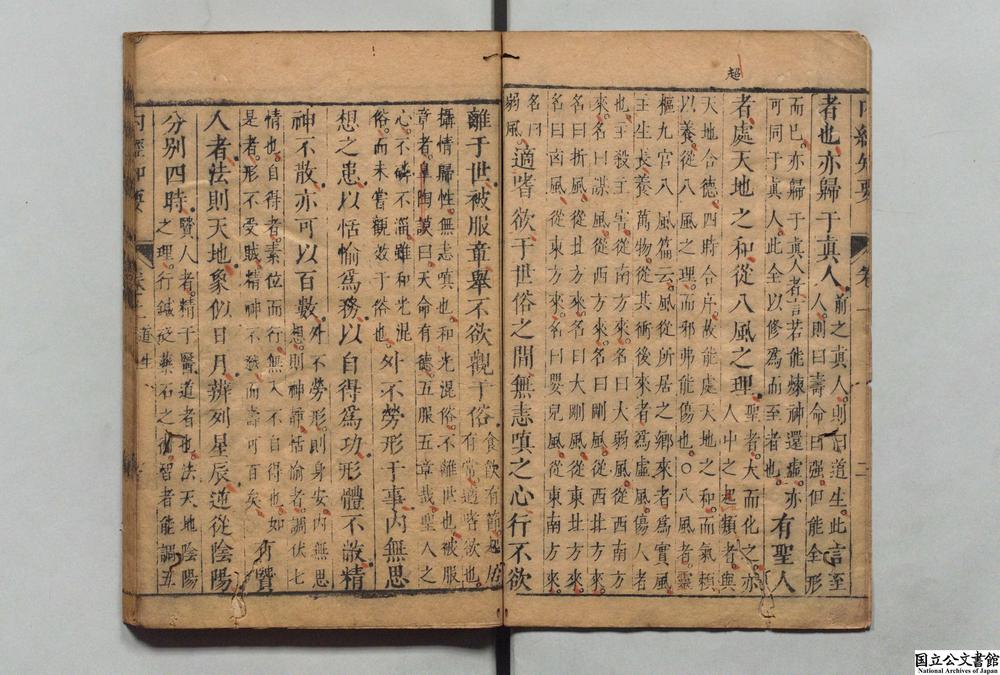 超
內經知要 卷上 二
者也亦歸于真人
前之真人則曰道生此言至
人則曰壽命曰强但能全形
而已亦歸于真人者言若能煉神還虛亦
可同于真人此全以修爲而至者也
有聖人
者處天地之和從八風之理
聖者大而化之亦
人中之超類者與
天地合德四時合序故能處天地之和而氣賴
以養從八風之理而邪弗能傷也○八風者靈
樞九宮八風篇云風從所居之鄉來者爲實風
主生長養萬物從其衝後來者爲虛風傷人者
也主殺主害從南方來名曰大弱風從西南方
來名曰謀風從西方來名曰剛風從西北方來
名曰折風從北方來名曰大剛風從東北方來
名曰凶風從東方來名曰嬰兒風從東南方來
名曰
弱風
適嗜欲于世俗之間無恚嗔之心行不欲
離于世被服章舉不欲觀于俗
食飲有節起居
有常適嗜欲也
攝情歸性無恚嗔也和光混俗不離世也被服
章者臯陶謨曰天命有德五服五章哉聖人之
心不磷不淄雖和光混
俗而未嘗觀效于俗也
外不勞形于事内無思
想之患以恬愉爲務以自得爲功形體不敝精
神不散亦可以百數
外不勞形則身安内無思
想則神靜恬愉者調伏七
情也自得者素位而行無入不自得也如
是者形不受賊精神不越而壽可百矣
有賢
人者法則天地象似日月辨列星辰逆從陰陽
分別四時
賢人者精于醫道者也法天地陰陽
之理行鍼砭藥石之術智者能調五
內經知要 卷上 道生
国立公文書館
National Archives of Japan